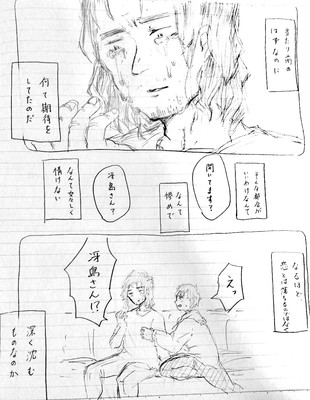 当たり前の
はずなのに
何て期待を
してたのだ
そんな都合が
いいわけなんて
聞いてます？
なんて
惨めで
冴島さん？
なんて女々しく
情けない
なるほど
恋とは落ちるのではなく
えっ
冴島さん!?
深く沈む
ものなのか